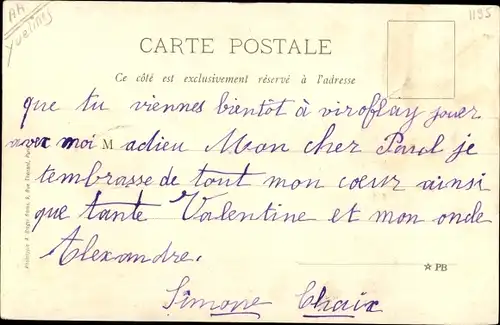 AA
Yvelines
1195
CARTE POSTALE
Ce côté est exclusivement réservé à l'adresse
que tu viennes bientôt à viroflay jouer
avec moi M adieu Mon cher Paul je
tembrasse de tout mon coeur ainsi
que tante Valentine et mon oncle
Alexandre.
☆ PB
Simone Chaix